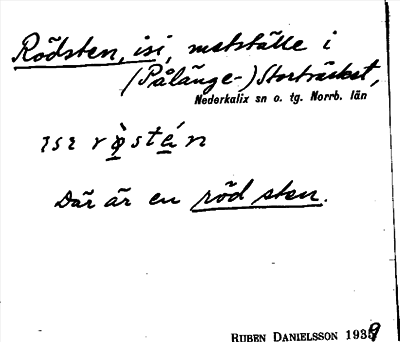 Rödsten, isi, metställe i
(Pålänge-)Storträsket,
Nederkalix sn o. tg. Norrb. län
ɿsɿ rø̀stén
Där är en röd sten.
RUBEN DANIELSSON 1939